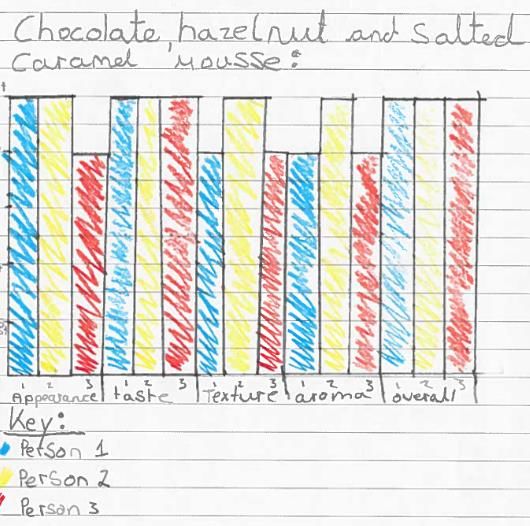 Chocolate, hazelnut and Salted
Caramel Mousse:
1 2 3 1 2 3 1 2 3 1 2 3 1 2 3
Appearance taste Texture aroma overall
Key:
Person 1
Person 2
Person 3